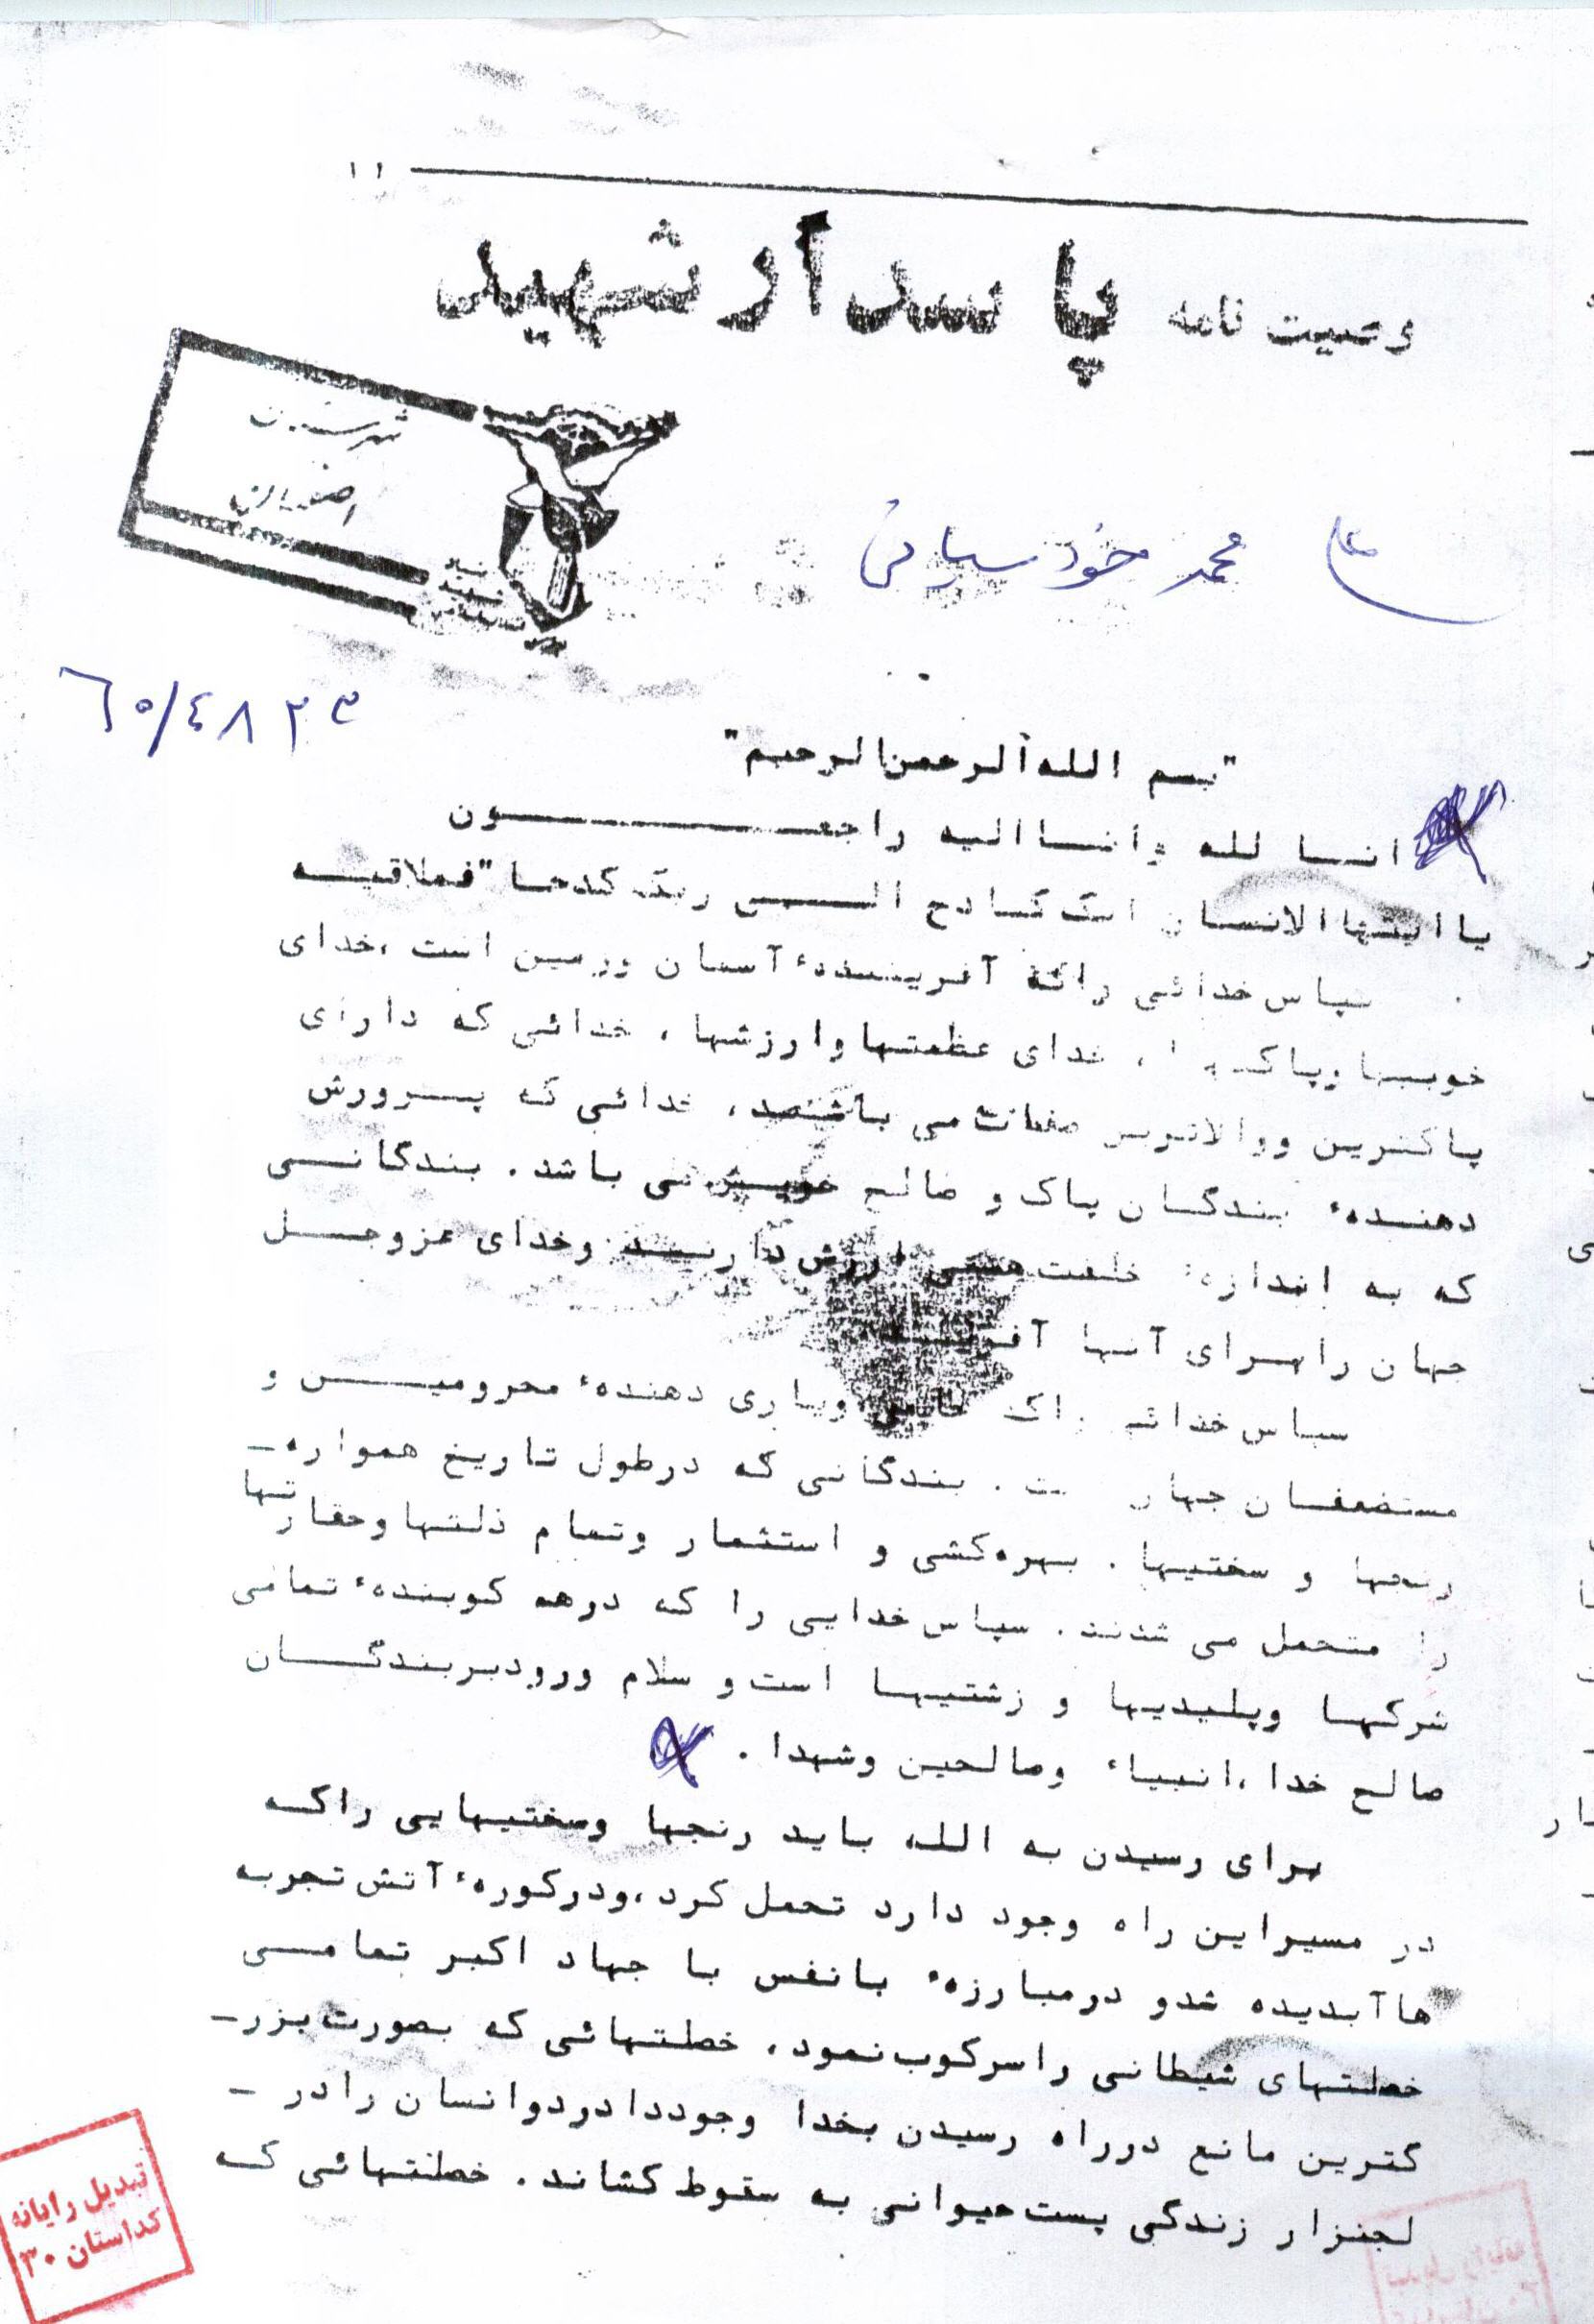 ۱۱
وصیت نامه پاسدار شهید
شهرستان
اصفهان
علی محمد خودسیانی
۶۵/۴۸۲۳
"بسم الله الرحمن الرحیم"
انا لله وانا الیه راجعون
یا ایتها الانسان انک کادح الی ربک کدحا "فملاقیه
سپاس خدائی راکه آفرینندهٔ آسمان وزمین است ،خدای
خوبیها وپاکیها ، خدای عظمتها وارزشها ، خدائی که دارای
پاکترین ووالاترین صفات می باشد ، خدائی که پرورش
دهندهٔ بندگان پاک و صالح خویش می باشد . بندگانی
که به اندازهٔ خلقت هستی ارزش دارند وخدای عزوجل
جهان رابرای آنها
سپاس خدائی راکه حامی ویاری دهندهٔ محرومین و
مستضعفان جهان است . بندگانی که درطول تاریخ همواره_
رنجها و سختیها . بهره‌کشی و استثمار وتمام ذلتها وحقارتها
را متحمل می شدند . سپاس خدایی را که درهم کوبندهٔ تمامی
شرکها وپلیدیها و زشتیها است و سلام ورود بربندگان
صالح خدا ،انبیاء وصالحین وشهدا .
برای رسیدن به الله باید رنجها وسختیهایی راکه
در مسیر این راه وجود دارد تحمل کرد ،ودرکورهٔ آتش تجربه
ها آبدیده شدو درمبارزهٔ بانفس با جهاد اکبر تمامی
خصلتهای شیطانی راسرکوب نمود ، خصلتهائی که بصورت بزر_
گترین مانع درراه رسیدن بخدا وجوددا دردوانسان رادر _
لجنزار زندگی پست حیوانی به سقوط کشاند . خصلتهائی که
تبدیل رایانه
کداستان ۳۰